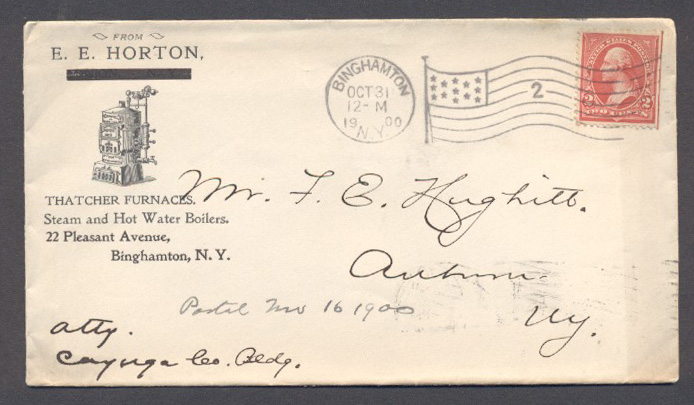 FROM
E. E. HORTON,
THATCHER FURNACES.
Steam and Hot Water Boilers.
22 Pleasant Avenue,
Binghamton, N. Y.
BINGHAMTON
OCT 31
12-M
1900
N.Y.
2
2 2
Mr. F. E. Hughitt.
Auburn
NY.
Postal Nov 16 1900
atty.
Cayuga Co. Bldg.